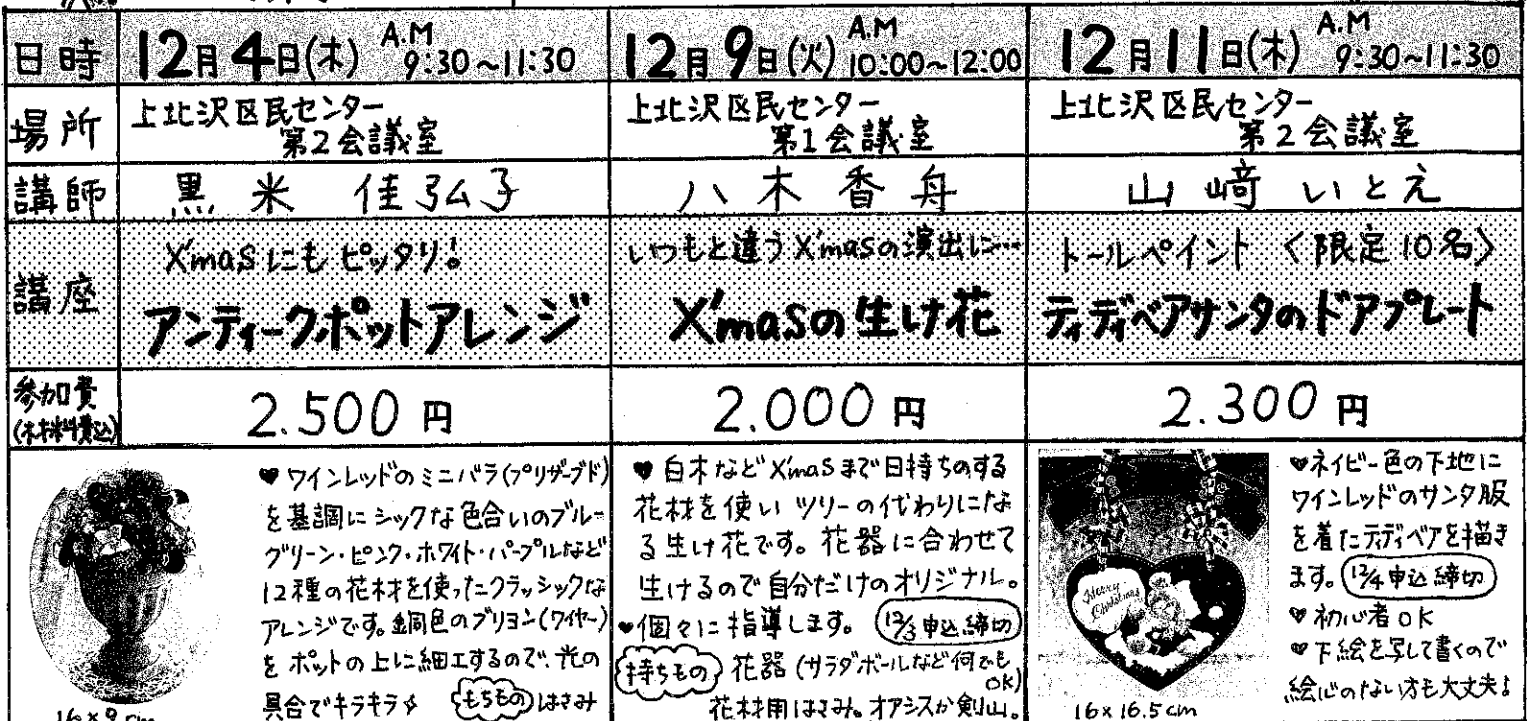 日時
12月4日(木) A.M 9:30~11:30
12月9日(火) A.M 10:00~12:00
12月11日(木) A.M 9:30~11:30
場所
上北沢区民センター
第2会議室
上北沢区民センター
第1会議室
上北沢区民センター
第2会議室
講師
黒米 佳弘子
八木香舟
山﨑 いとえ
講座
X'masにもピッタリ!
アンティークポットアレンジ
いつもと違うX'masの演出に…
X'masの生け花
トールペイント〈限定10名〉
ティディベアサンタのドアプレート
参加費
(材料費込)
2.500円
2.000円
2.300円
♥ワインレッドのミニバラ(プリザーブド)
を基調にシックな色合いのブルー
グリーン・ピンク・ホワイト・パープルなど
12種の花材を使ったクラッシックな
アレンジです。銅色のブリヨン(ワイヤー)
をポットの上に細工するので、光の
具合でキラキラ
もちもの はさみ
16×9cm
♥白木などX'masまで日持ちのする
花材を使いツリーの代わりにな
る生け花です。花器に合わせて
生けるので自分だけのオリジナル。
♥個々に指導します。 12/3申込締切
持ちもの 花器(サラダボールなど何でも
OK)
花材用はさみ。オアシスか剣山。
Merry
Christmas
16×16.5cm
♥ネイビー色の下地に
ワインレッドのサンタ服
を着たテディベアを描き
ます。 12/4申込締切
♥初心者OK
♥下絵を写して書くので
絵心のない方も大丈夫!